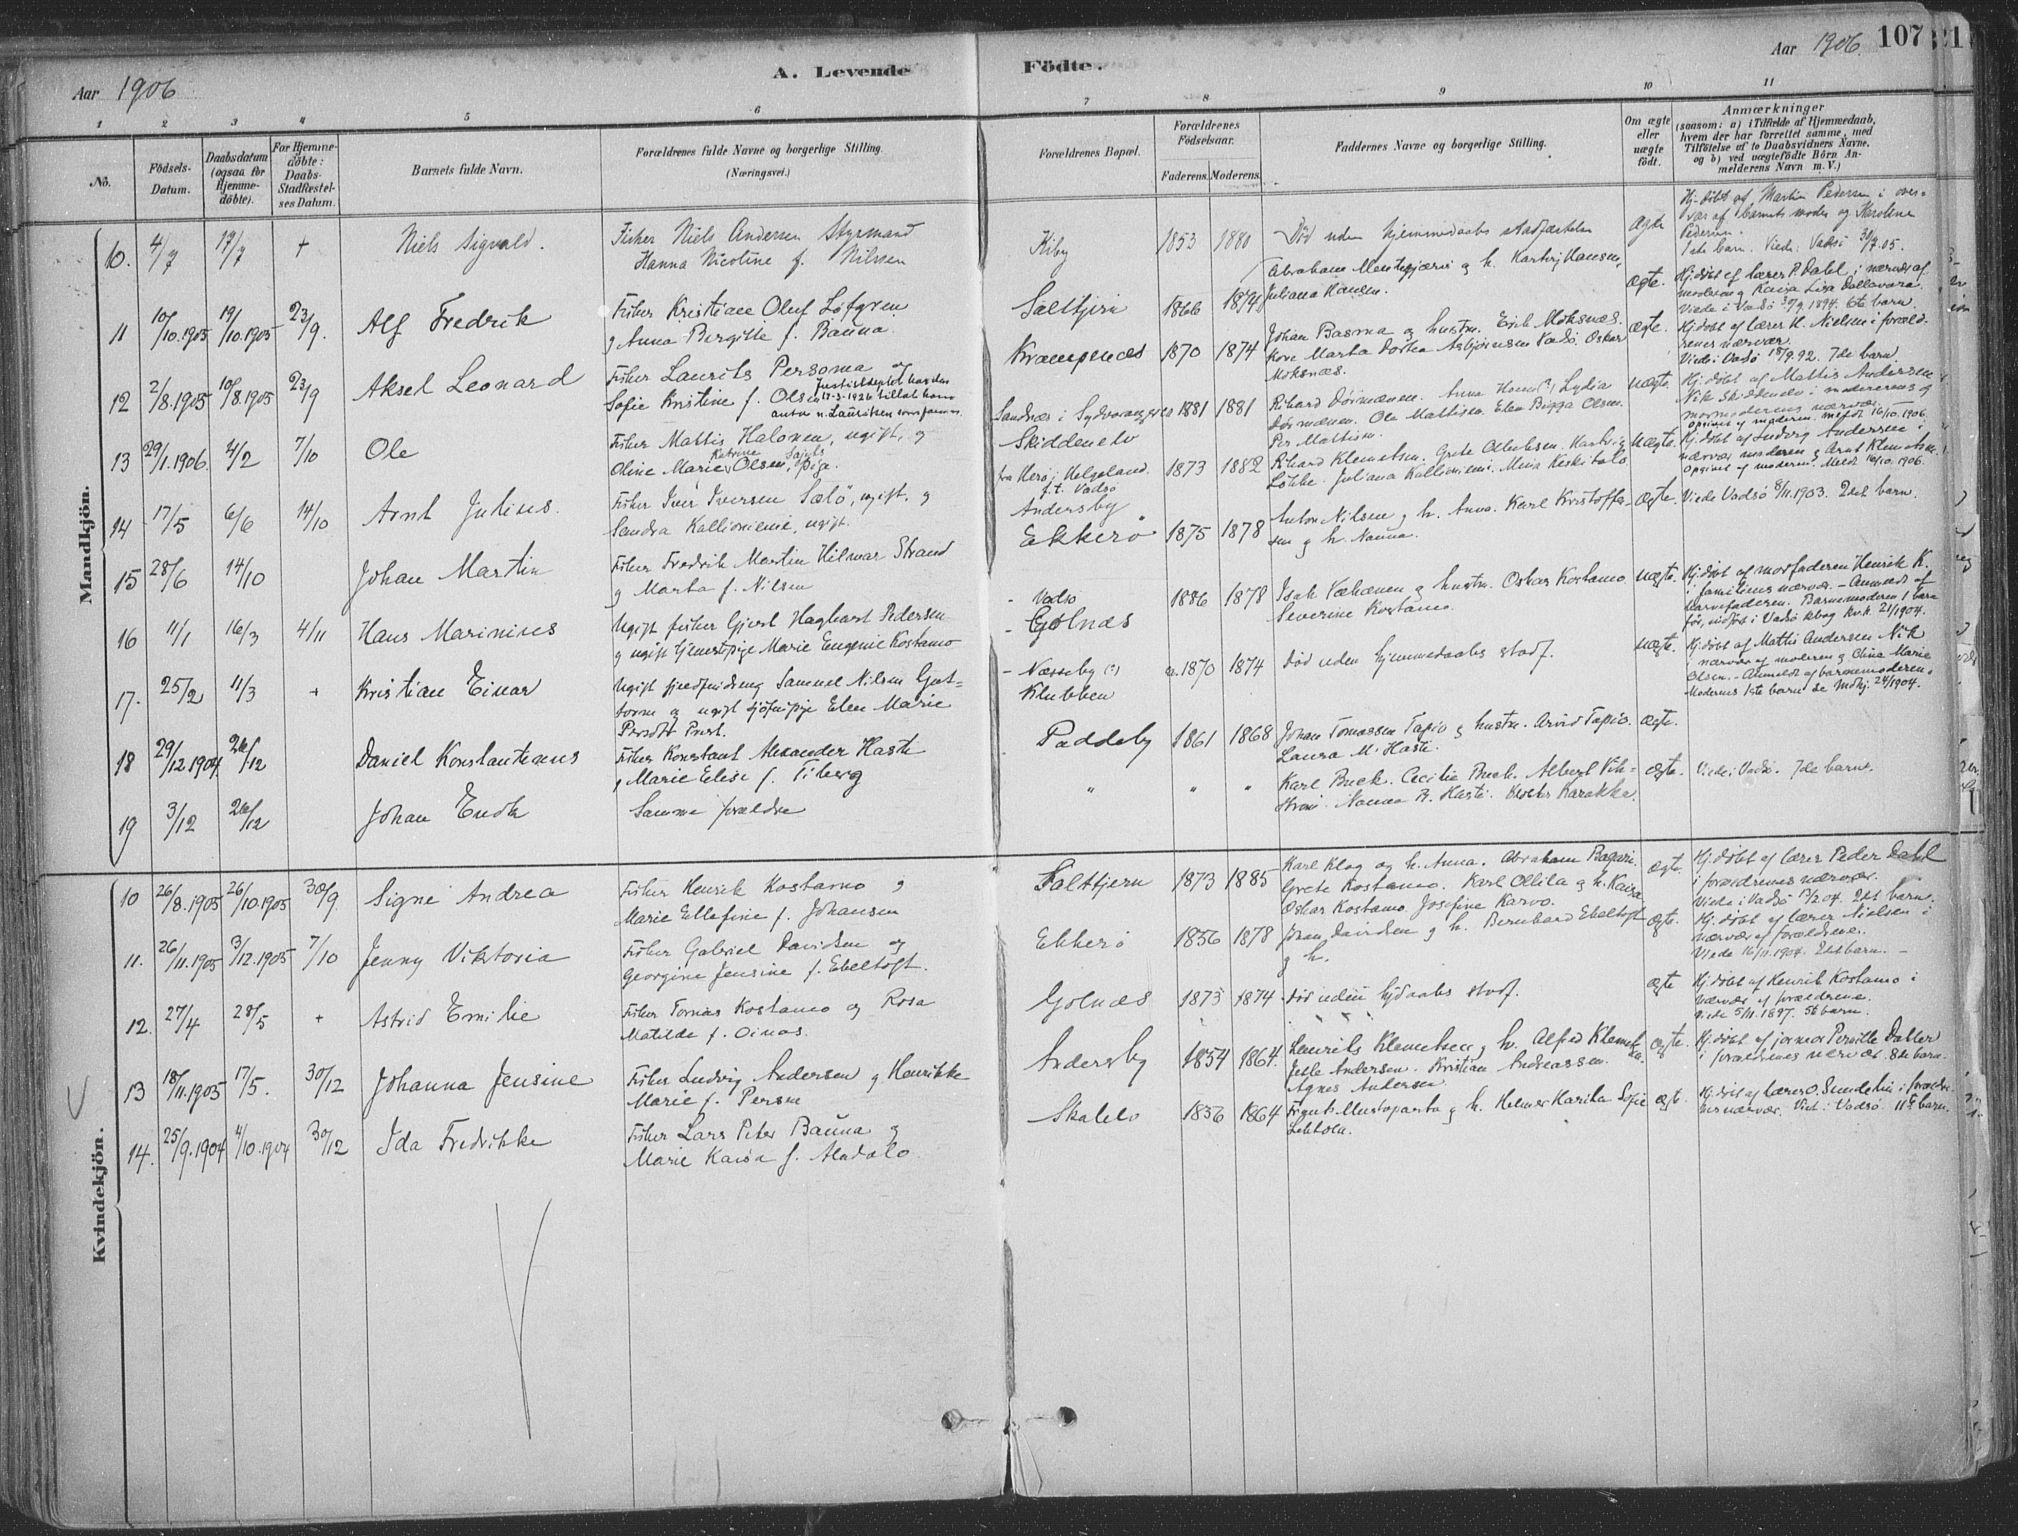 Aar 1906
A. Levende
Födte.
Aar 1906. 107
1 2 3 4 5 6 7 8 9 10 11
No.
Födsels-
Datum.
Daabsdatum
(ogsaa for
Hjemme-
döbte).
For Hjemme-
döbte:
Daabs-
Stadfæstel-
ses Datum.
Barnets fulde Navn.
Forældrenes fulde Navne og borgerlige Stilling.
(Næringsvei.)
Forældrenes Bopæl.
Forældrenes
Födselsaar.
Faderens. Moderens.
Faddernes Navne og borgerlige Stilling.
Om ægte
eller
uægte
födt.
Anmærkninger
(saasom: a) i Tilfælde af Hjemmedaab,
hvem der har forrettet samme, med
Tilföielse af to Daabsvidners Navne,
og b) ved uægtefödte Börn An-
melderens Navn m. V.)
Mandkjön.
10. 4/7 17/7 + Niels Sigvald.
Fisker Niels Andersen Styrmand
Hanna Nicoline f. Nilssen
Kiby 1853 1880 Död uden hjemmedaabs stadfæstelse ægte
Hj.döbt af Martin Pedersen i over-
vær af barnets moder og Karoline
Pedersen.
1ste barn. Viede: Vadsö 30/7.05.
11 10/10.1905 19/10.1905 23/9. Alf Fredrik
Fisker Kristian Oluf Löfgren
og Anna Birgitte f. Bauna.
Saltjern 1866 1874
Juliana Hansen. ægte.
Hj.döbt af lærer P. Dahl i nærvær af
Viede i Vadsö 30/9 1894. 6te barn.
12 2/8.1905 10/8.1905 23/9 Aksel Leonard
Fisker Laurits Persoma og
Sofie Kristine f. Olsen
Krampenæs 1870 1874
Johan Basma og hustru. Erik Moksnæs.
Kone Marta Dortea Asbjörnsen Vadsö. Oskar
Moksnæs. ægte.
Hj.döbt af lærer K. Nielsen i foræld-
renes nærvær.
Viede i Vadsö 18/9.92. 7de barn.
13 29/1.1906. 4/2 7/10 Ole
Fisker Mattis Halonen, ugift, og
Oline Marie Olsen, pige.
Sandnæs i Sydvaranger 1881 1881
Skiddenelv
Per Mattisen. uægte.
Hj.döbt af Mattis Andersen
14 17/5 6/6 14/10 Arnt Julius.
Fisker Iver Iversen Sælö, ugift, og
Sandra Kallioniemi, ugift.
fra Heröi Helgeland. 1873 1882
f.t. Vadsö
Andersby
Rikard Klemetsen. Grete
Juliana Kallioniemi. uægte.
Hj.döbt af Ludvig Andersen i
nærvær moderen og Arnt Klemetsen.
Opgivet af moderen. Meldt 16/10.1906.
15 28/6 14/10 Johan Martin
Fisker Fredrik Martin Hilmar Strand
og Marta f. Nilsen
Ekkerö 1875 1878
Anton Nilsen og h. Anna. Karl Kristoffer-
sen og h. Nanna. ægte.
Viede Vadsö 8/11.1903. 2det barn.
16 11/1 16/3 4/11 Hans Marinius
Ugift fisker Gjert Haghart Pedersen
og ugift tjenestpige Marie Eugenie Kostamo
- Vadsö 1886 1878
- Golnæs
hustru. Oskar Kostamo
Severine Kostamo. uægte.
Hj.döbt af morfaderen Henrik K.
i familiens nærvær. - Anmeldt af
barnefaderen. Barnemoderen 1 barn
för, indfört i Vadsö kbog Kvk. 21/1904.
17. 25/2 11/3 + Kristian Einar
Ugift Samuel Nilsen
og ugift Elen Marie
- Næsseby (?) ca.1870 1874
- Klubben
Död uden hjemmedaabs stadf. uægte.
Hj.döbt af Mattis Andersen Nik
i nærvær af moderen og Olina Marie
Olsen. - Anmeldt af barnemoderen.
Modernes 1ste barn se Mdkj. 24/1904.
18 29/12.1904. 26/12 Daniel Konstantinus
Fisker Konstant Alexander Hasti
og Marie Elise f. Tiberg
Paddeby 1861 1868
Johan Tomassen Tapio og hustru. Arvid Tapio.
Laura M. Hasti. ægte.
19 3/12 26/12 Johan Endre
Samme forældre
" " "
Karl Buck. Cecilie Buck. Albert Vik-
ström. Nanna B. Hasti. Karakka. ægte.
Viede i Vadsö. 7de barn.
Kvindekjön.
10 26/8.1905 26/10.1905 30/9. Signe Andrea
Fisker Henrik Kostamo og
Marie Ellefine f. Johansen
Saltjern 1873 1885
Karl Klog og h. Anna. Abraham Bagari.
Grete Kostamo. Karl Ollila og h. Kaisa
Oskar Kostamo. Josefine Karvo. ægte.
Hj.döbt af lærer Peder Dahl
i forældrenes nærvær.
Viede i Vadsö 17/2.04. 2det barn.
11. 26/11.1905 3/12.1905 7/10 Jenny Viktoria
Fisker Gabriel Davidsen og
Georgine Jensine f. Ebeltoft.
Ekkerö 1856 1878
Johan Davidsen og h. Bernhard Ebeltoft
og h. ægte.
Hj.döbt af lærer Nielsen i
nærvær af forældrene.
Viede 16/11.1904. 2det barn. -
12. 27/4 28/5 + Astrid Emilie
Fisker Tomas Kostamo og Rosa
Matilde f. Oinas.
Golnæs 1873 1874
Död uden hjdaabs stadf. ægte
Hj.döbt af Henrik Kostamo i
nærvær af forældrene.
Viede 5/11.1897. 5te barn.
13 18/11.1905 17/5. 30/12 Johanna Jensine
Fisker Ludvig Andersen og Henrikke
Marie f. Persen
Andersby 1854 1864.
Laurits Klemetsen og h. Alfred Klemetsen.
Jette Andersen. Kristian Andreassen.
Agnes Andersen. ægte.
Hj.döbt af jormor Pernille Dabler
i forældrenes nærvær. 8de barn.
14. 25/9.1904 4/10.1904 30/12 Ida Fredrikke
Fisker Lars Peter Bauna og
Marie Kaisa f. Aladalo.
Skalelv 1856 1864
og h. Helmer Karila Sofie ægte.
Hj.döbt af lærer O. Sundelin i foræld-
nes nærvær. Viet i Vadsö 11te barn.